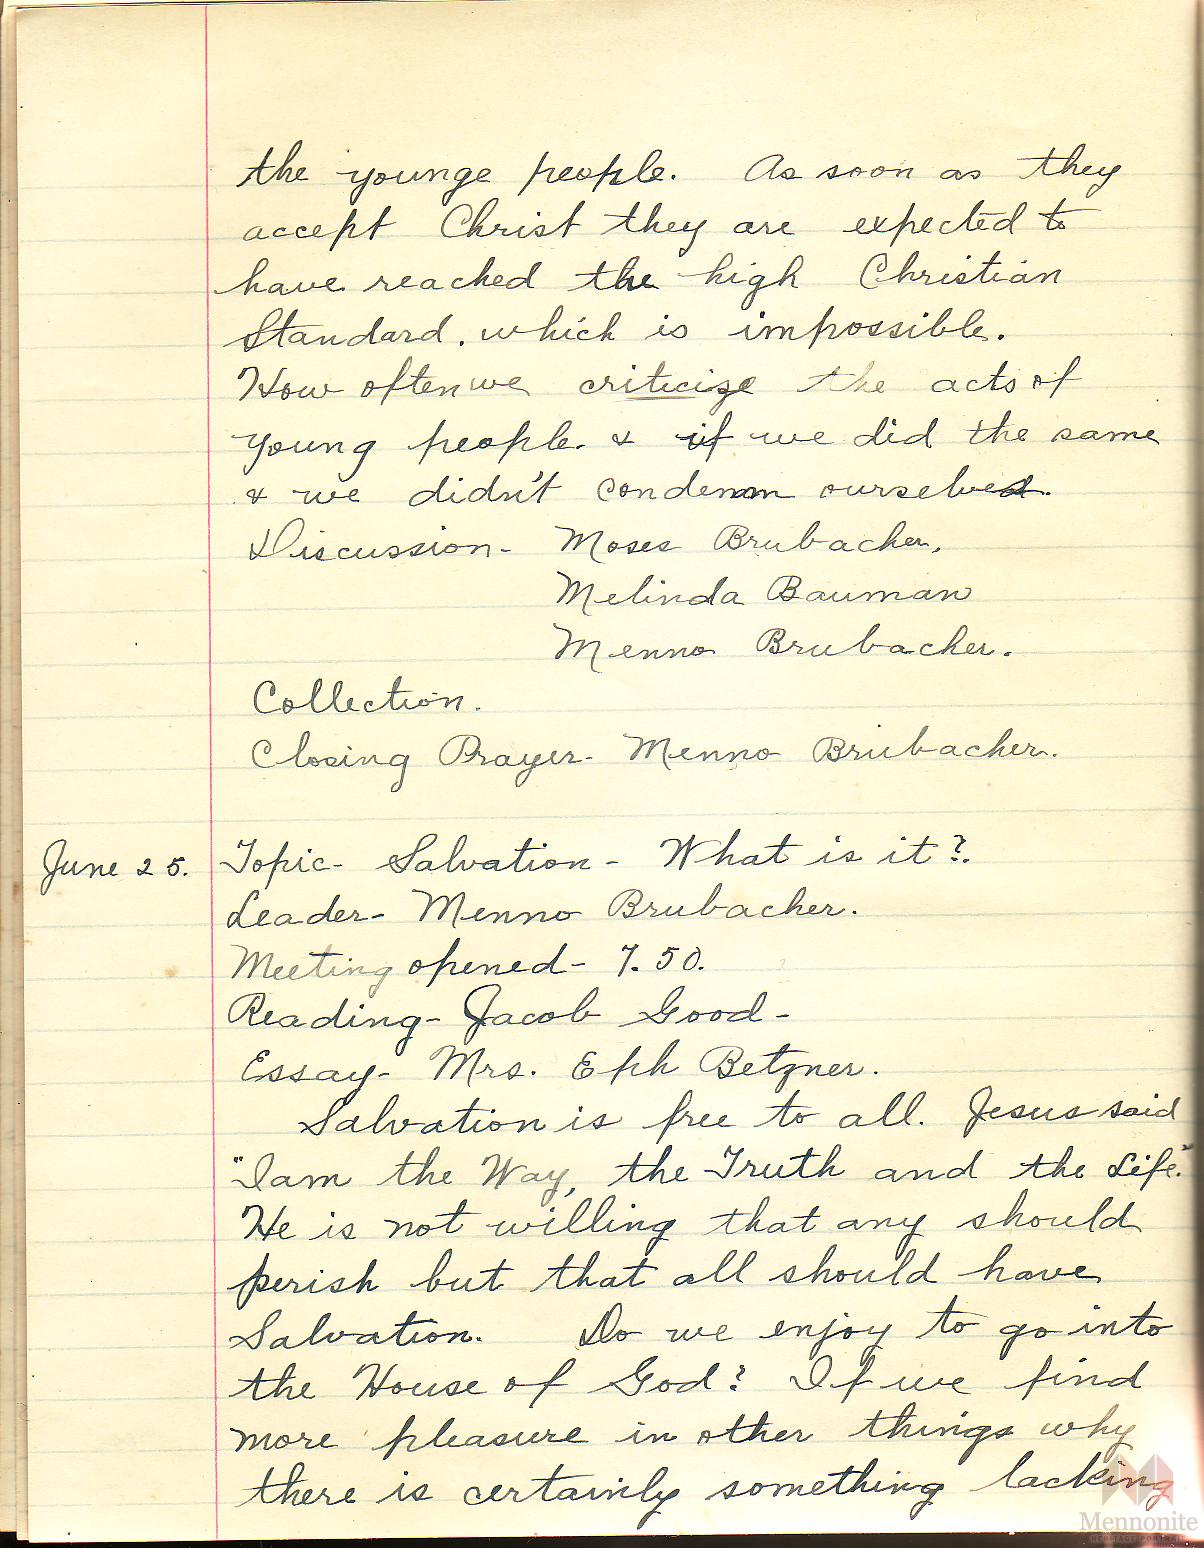 the younge people. As soon as they
accept Christ they are expected to
have reached the high Christian
Standard. which is impossible.
How often we criticize the acts of
young people. & if we did the same
& we didn't condemn ourselves.
Discussion- Moses Brubacher,
Melinda Bauman
Menno Brubacher.
Collection.
Closing Prayer- Menno Brubacher.
June 25. Topic- Salvation - What is it?.
Leader- Menno Brubacher.
Meeting opened- 7.50.
Reading- Jacob Good-
Essay- Mrs. Eph Betzner.
Salvation is free to all. Jesus said
"I am the Way, the Truth and the Life."
He is not willing that any should
perish but that all should have
Salvation. Do we enjoy to go into
the House of God? If we find
more pleasure in other things why
there is certainly something lacking
Mennonite